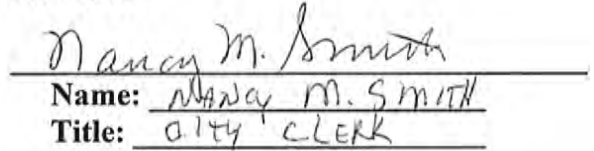 Nancy M. Smith
Name: NANCY M. SMITH
Title: CITY CLERK